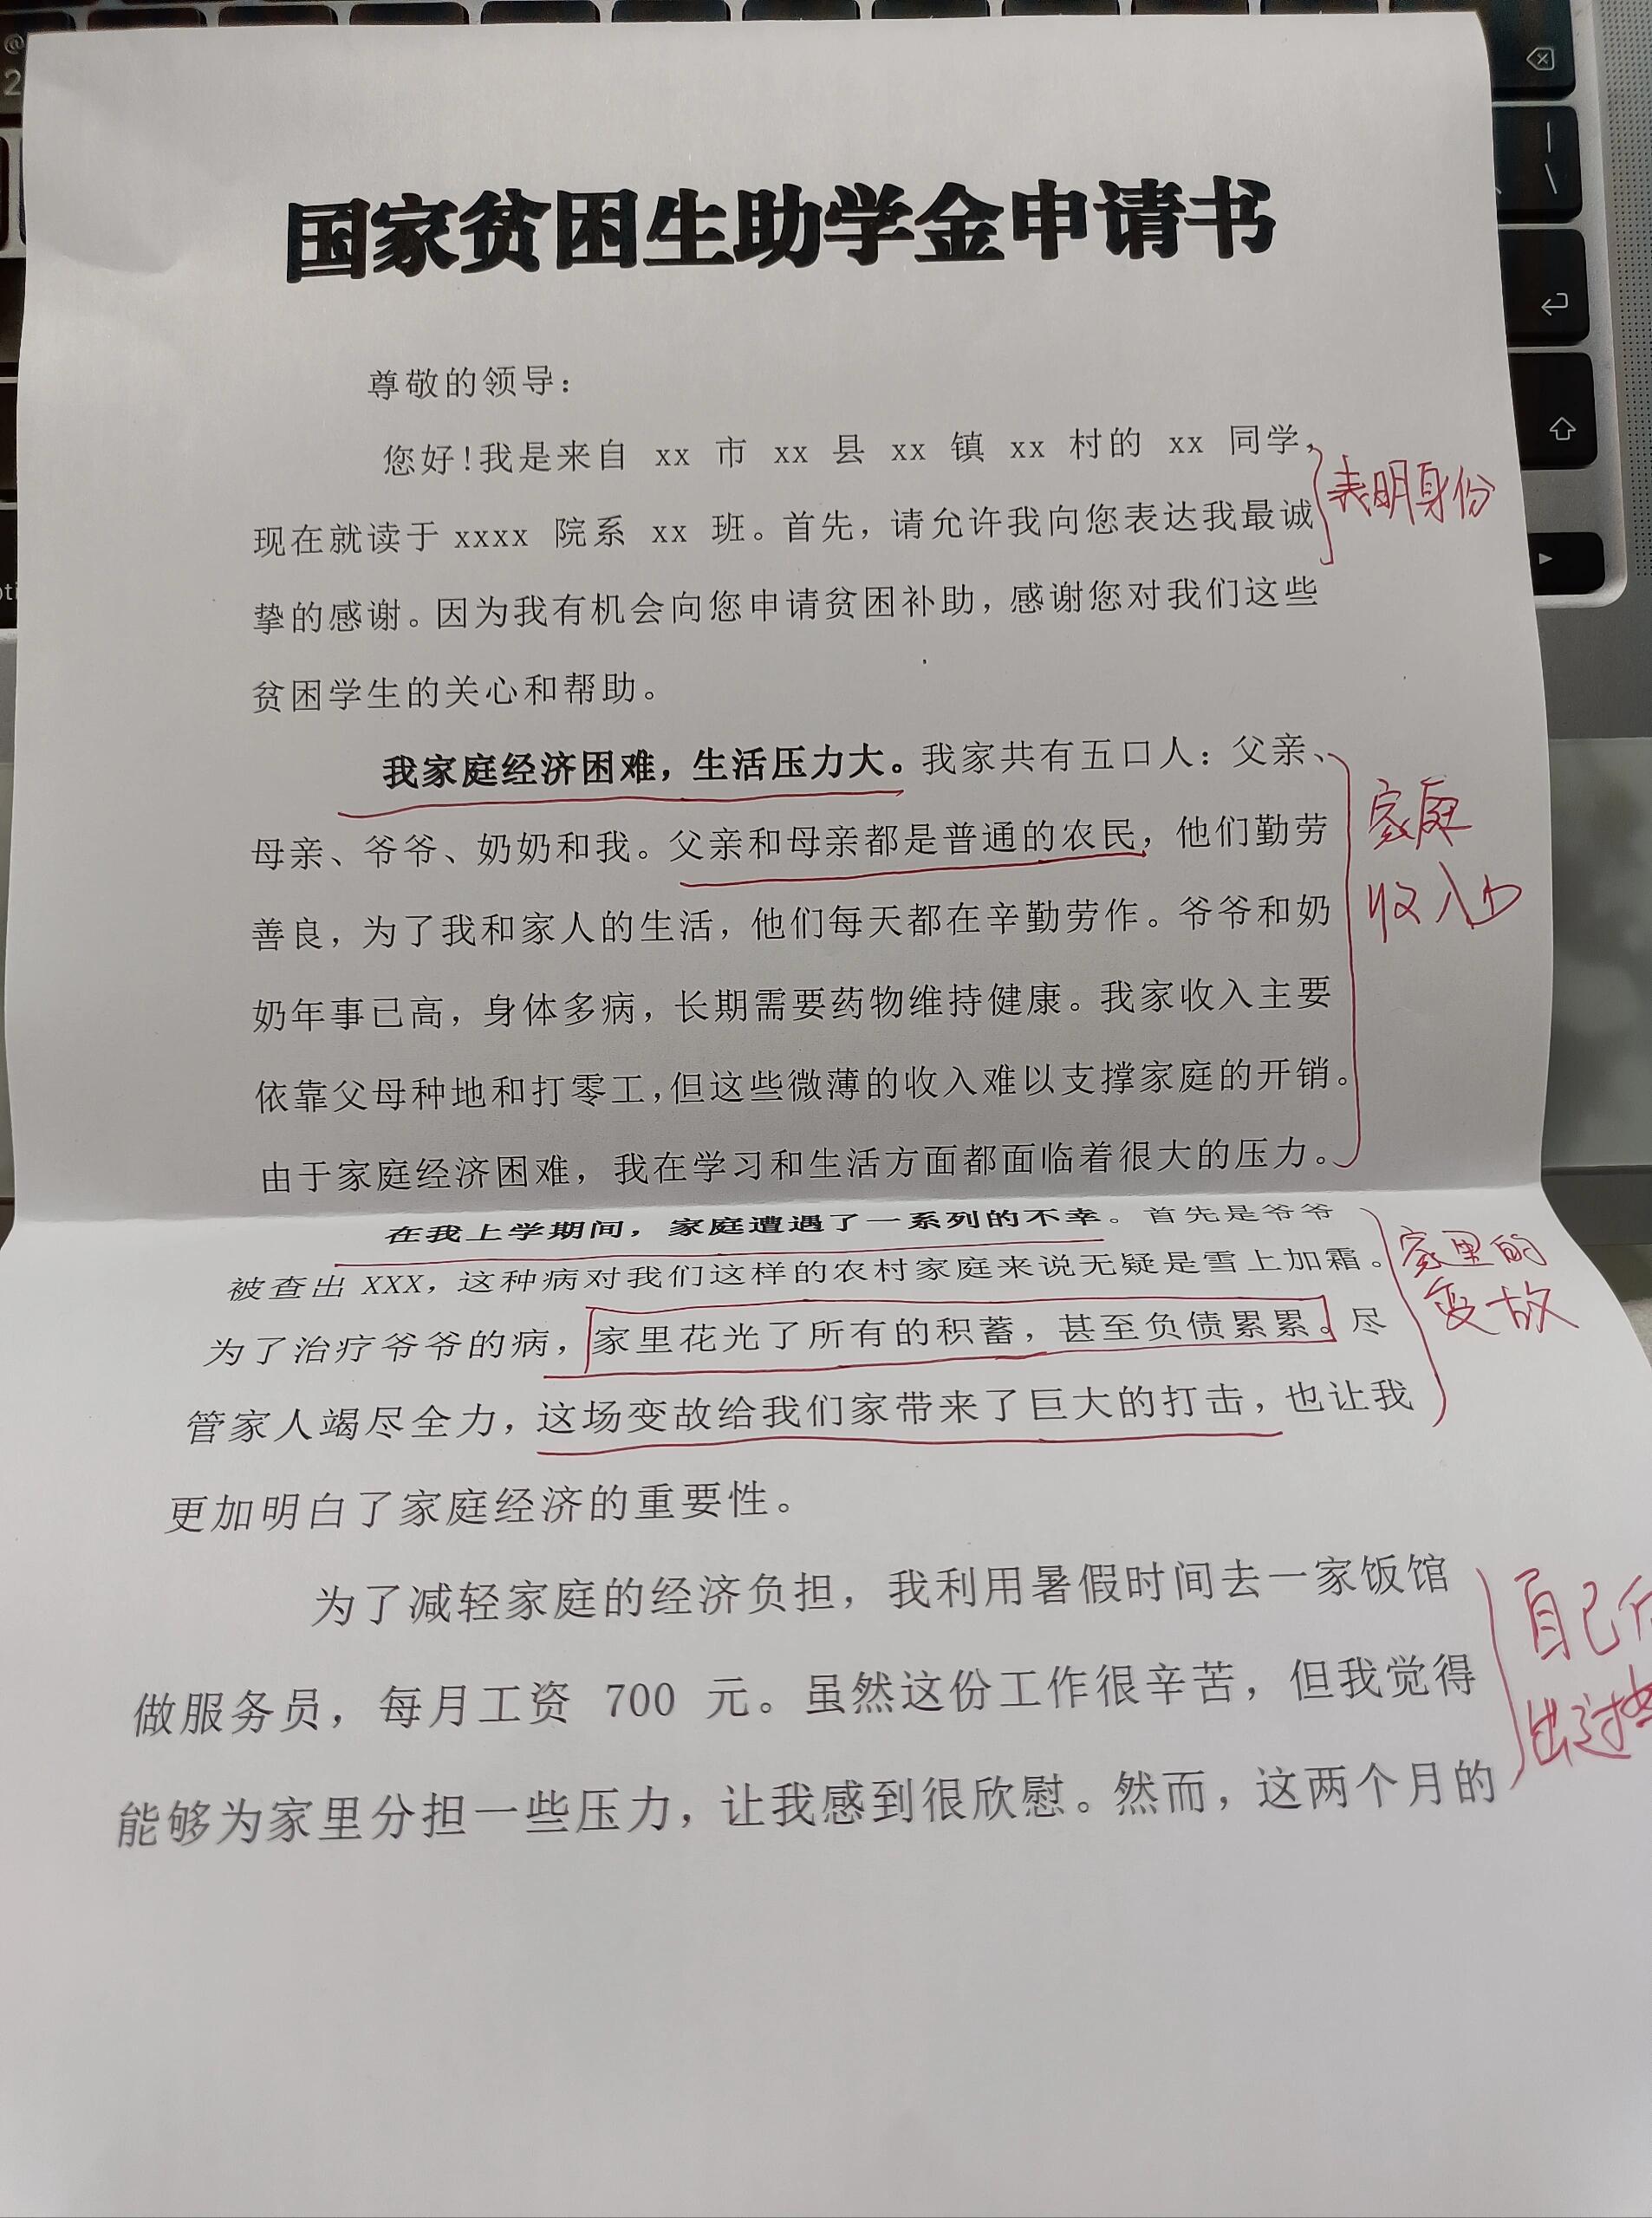 国家贫困生助学金申请书
尊敬的领导：
您好！我是来自 xx 市 xx 县 xx 镇 xx 村的 xx 同学，
表明身份
现在就读于 xxxx 院系 xx 班。首先，请允许我向您表达我最诚
挚的感谢。因为我有机会向您申请贫困补助，感谢您对我们这些
贫困学生的关心和帮助。
我家庭经济困难，生活压力大。我家共有五口人：父亲、
家庭
母亲、爷爷、奶奶和我。父亲和母亲都是普通的农民，他们勤劳
收入
善良，为了我和家人的生活，他们每天都在辛勤劳作。爷爷和奶
奶年事已高，身体多病，长期需要药物维持健康。我家收入主要
依靠父母种地和打零工，但这些微薄的收入难以支撑家庭的开销。
由于家庭经济困难，我在学习和生活方面都面临着很大的压力。
在我上学期间，家庭遭遇了一系列的不幸。首先是爷爷
家里的
被查出 XXX，这种病对我们这样的农村家庭来说无疑是雪上加霜。
变故
为了治疗爷爷的病，家里花光了所有的积蓄，甚至负债累累。尽
管家人竭尽全力，这场变故给我们家带来了巨大的打击，也让我
更加明白了家庭经济的重要性。
为了减轻家庭的经济负担，我利用暑假时间去一家饭馆
自己
做服务员，每月工资 700 元。虽然这份工作很辛苦，但我觉得
出过
能够为家里分担一些压力，让我感到很欣慰。然而，这两个月的
@
2
|
\